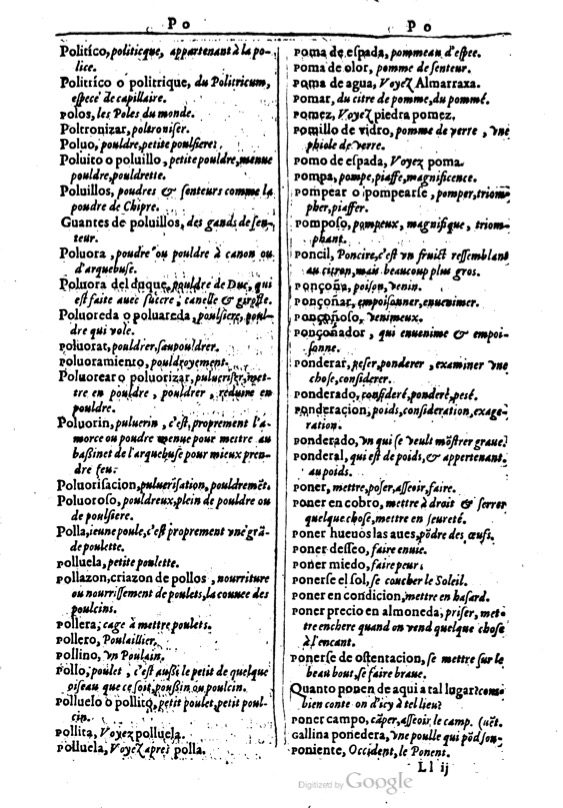 Po
Politíco, politicque, appartenant à la po-
lice.
Politrico o politrique, du Politricum,
espece de capillaire.
Polos, les Poles du monde.
Poltronizar, poltroniser.
Poluo, pouldre, petite poulsiere.
Poluito o poluillo, petite pouldre, menue
pouldre, pouldrette.
Poluillos, poudres & senteurs comme la
poudre de Chipre.
Guantes de poluillos, des gands de sen-
teur.
Poluora, poudre ou pouldre à canon ou
d'arquebuse.
Poluora del duque, pouldre de Duc, qui
est faite auec succre, canelle & girofle.
Poluoreda o poluareda, poulsiere, poul-
dre qui vole.
Poluorar, pouldrer, saupouldrer.
poluoramiento, pouldroyement.
Poluorear o poluorizar, puluerizer, met-
tre en pouldre, pouldrer, reduire en
pouldre.
Poluorin, puluerin, c'est, proprement l'a-
morce ou poudre menue pour mettre au
baßinet de l'arquebuse pour mieux pren-
dre feu.
Poluorisacion, puluerisation, pouldremēt.
Poluoroso, pouldreux, plein de pouldre ou
de poulsiere.
Polla, ieune poule, c'est proprement vne grā-
de poulette.
polluela, petite poulette.
pollazon, criazon de pollos, nourriture
ou nourrissement de poulets, la couuee des
poulcins.
pollera, cage à mettre poulets.
pollero, Poulaillier.
pollino, vn Poulain.
Pollo, poulet, c'est außi le petit de quelque
oiseau que ce soit, poußin ou poulcin.
polluelo o pollito, petit poulet, petit poul-
cin.
pollita, Voyez polluela.
polluela, Voyez apres polla.
Po
Poma de espada, pommeau d'espee.
Poma de olor, pomme de senteur.
Poma de agua, Voyez Almarraxa.
Pomar, du citre de pomme, du pommé.
Pomez, Voyez piedra pomez.
Pomillo de vidro, pomme de verre, vne
phiole de verre.
Pomo de espada, Voyez poma.
Pompa, pompe, piaffe, magnificence.
Pompear o pompearse, pomper, triom-
pher, piaffer.
Pomposo, pompeux, magnifique, triom-
phant.
Poncil, Poncire, c'est vn fruict ressemblant
au citron, mais beaucoup plus gros.
Ponçoña, poison, venin.
Ponçoñar, empoisonner, enuenimer.
Ponçoñoso, venimeux.
Ponçoñador, qui enuenime & empoi-
sonne.
Ponderar, peser, ponderer, examiner vne
chose, considerer.
Ponderado, consideré, ponderé, pesé.
Ponderacion, poids, consideration, exage-
ration.
Ponderado, vn qui se veult mōstrer graue.
Ponderal, qui est de poids, & appertenant
au poids.
Poner, mettre, poser, asseoir, faire.
Poner en cobro, mettre à droit & serrer
quelque chose, mettre en seureté.
Poner hueuos las aues, pōdre des œufs.
Poner desseo, faire enuie.
Poner miedo, faire peur.
Ponerse el sol, se coucher le Soleil.
Poner en condicion, mettre en hasard.
Poner precio en almoneda, priser, met-
tre enchere quand on vend quelque chose
à l'encant.
Ponerse de ostentacion, se mettre sur le
beau bout, se faire braue.
Quanto ponen de aqui a tal lugar? com-
bien conte on d'icy à tel lieu?
Poner campo, cāper, asseoir le camp. (uēt.
Gallina ponedera, vne poulle qui pōd sou-
Poniente, Occident, le Ponent.
Ll ij
Digitized by Google